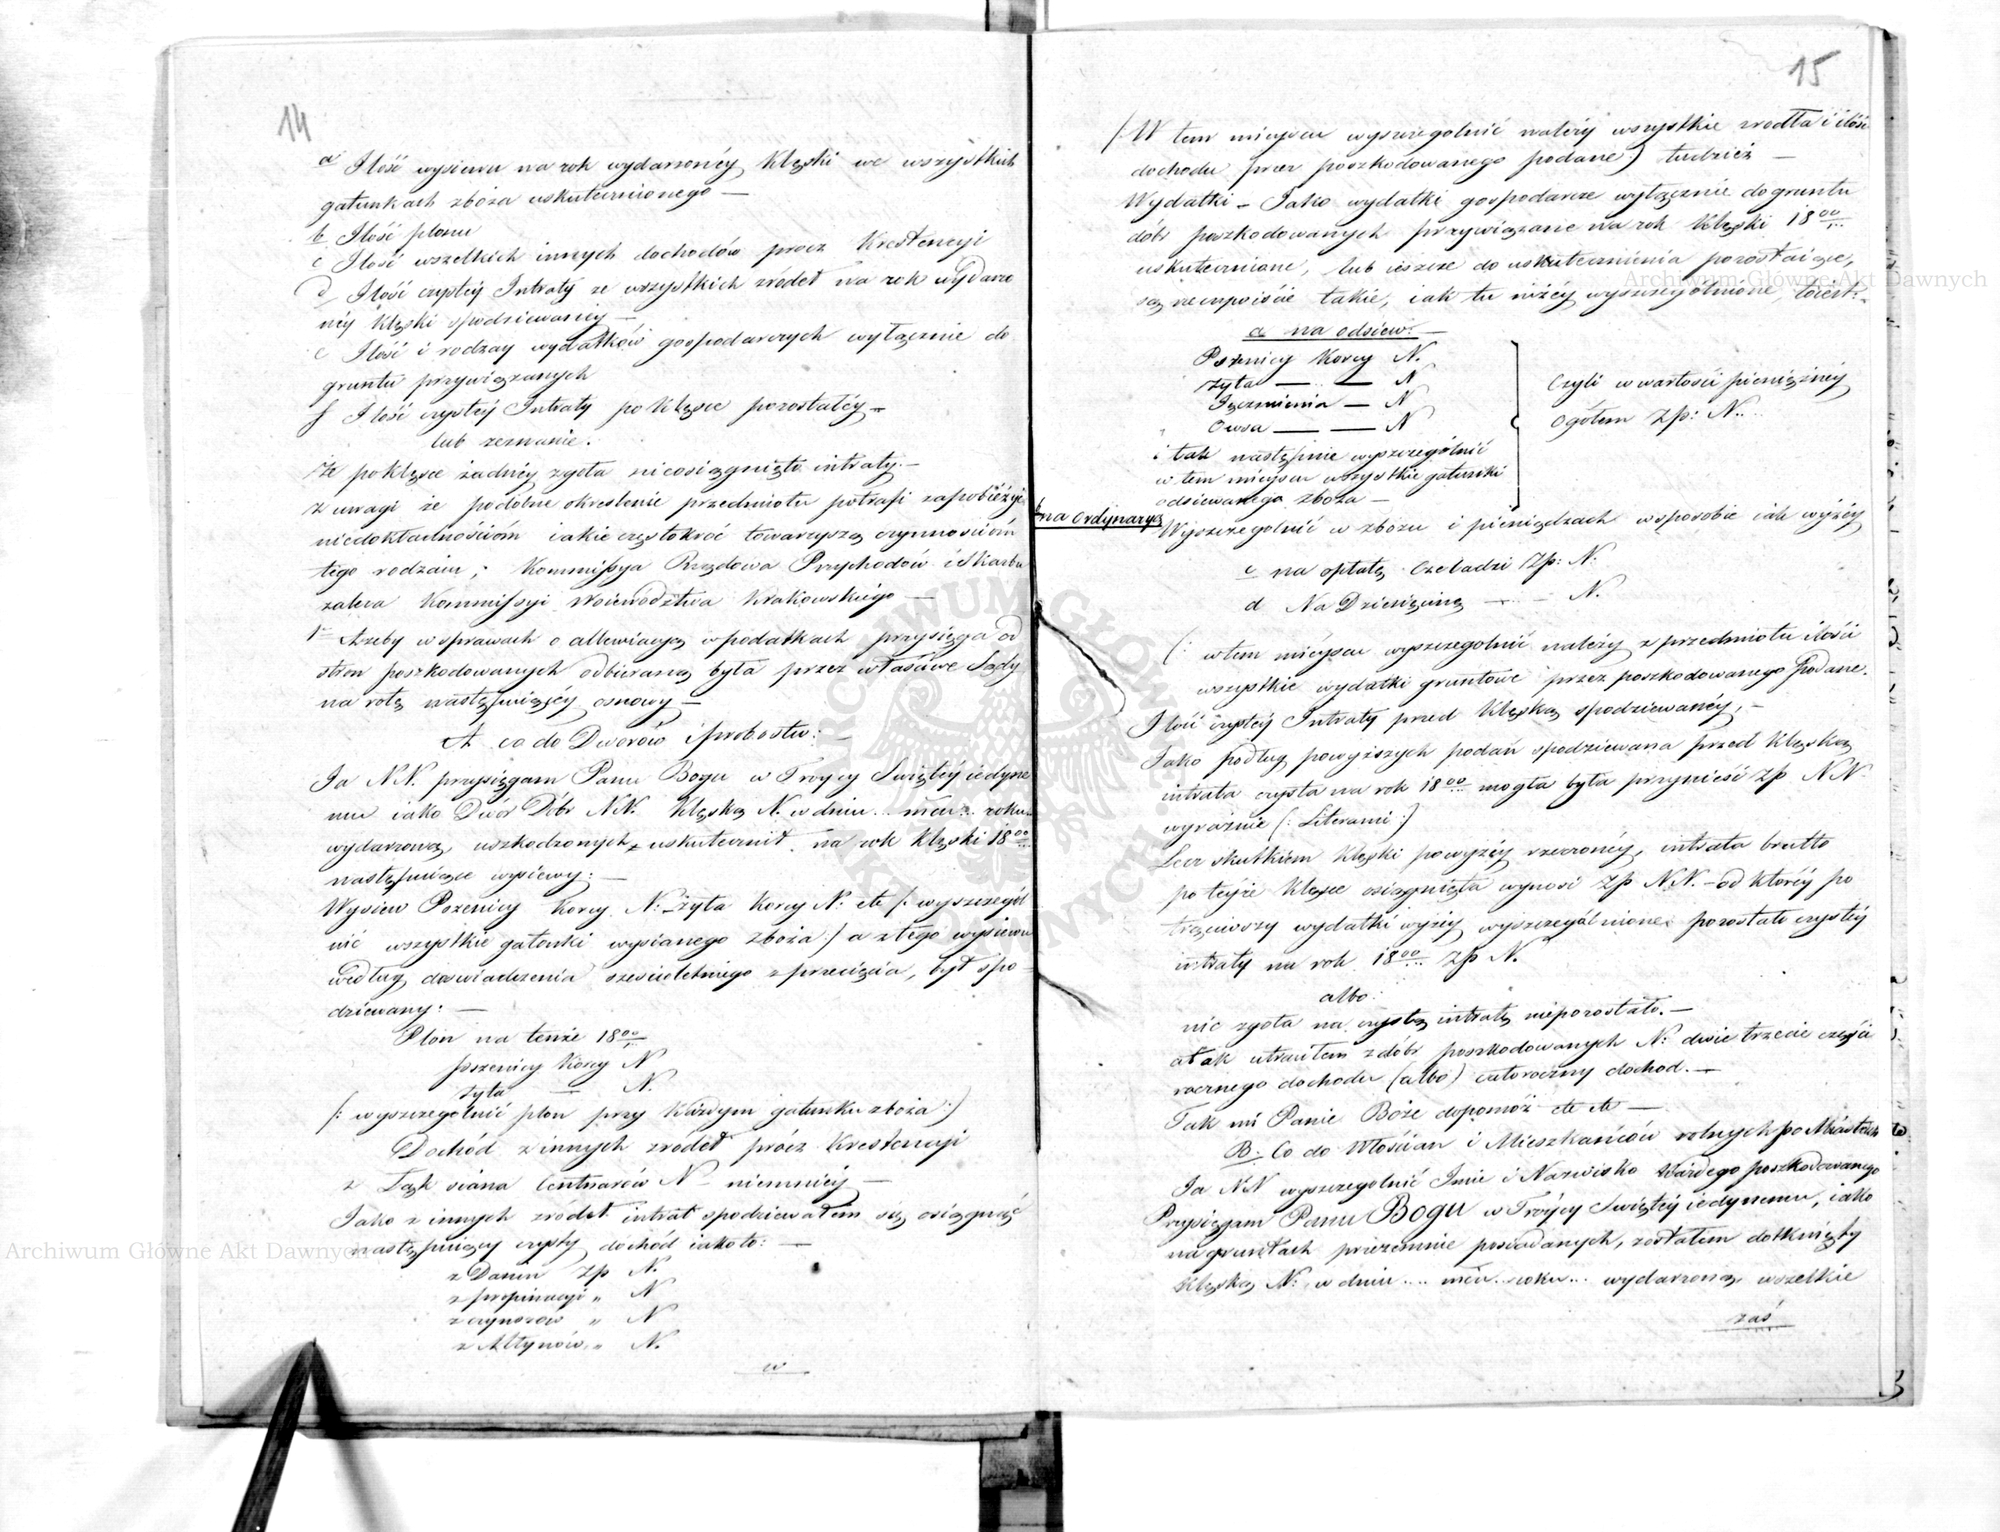 14
a Ilość wysiewu na rok wydarzonéy klęski we wszystkich
gatunkach zboża uskutecznionego —
b Ilość plonu
c Ilość wszelkich innych dochodów prócz Krestencyi
d Ilość czystéy Intraty ze wszystkich zrodeł na rok wydarzo
néy klęski spodziewanéy —
e Ilość i rodzay wydatków gospodarczych wyłącznie do
gruntu przywiązanych
f Ilość czystéy Intraty po klęsce pozostałéy —
lub zeznanie.
że po klęsce żadnéy zgoła nieosiągnięto intraty. —
Z uwagi że podobne okreslenie przedmiotu potrafi zapobiédz
niedokładnościóm iakie częstokroć towarzyszą czynnościóm
tego rodzaiu; Kommissya Rządowa Przychodów i Skarbu
zaleca Kommissyi Woiewództwa Krakowskiego —
1º Ażeby w sprawach o allewiacyą w podatkach przysięga od
stron poszkodowanych odbieraną była przez właściwe Sądy
na rotę następuiącéy osnowy —
A co do Dworów i probostw: —
Ja N.N. przysięgam Panu Bogu w Tróycy Swiętéy iedyne
mu iako Dwór Dóbr N.N. Klęską N. w dniu .. mca .. roku
wydarzoną, uszkodzonych, uskutecznił na rok klęski 18 00
następuiące wysiewy: —
Wysiew Pszenicy Korcy N: Żyta Korcy N: etc (: wyszczegól
nić wszystkie gatunki wysianego zboża :) a z tego wysiewu
według doswiadczenia szescioletniego z przecięcia, był spo
dziewany: —
Plon na tenże 18 00
pszenicy Korcy N
Żyta — N.
(: wyszczególnić plon przy każdym gatunku zboża :)
Dochód z innych zródeł prócz Krestencyi
z Łąk siana Centnarów N — niemniéy —
Jako z innych zrodeł intrat spodziewałem się osiągnąć
następuiący czysty dochód iako to: —
z Danin Zp N.
z propinacyi „ N
z czynszów „ N
z Młynów „ N.
w
15
(: W tem mieyscu wyszczegolnić należy wszystkie zrodła i ilość
dochodu przez poszkodowanego podane) tudzież —
Wydatki — Jako wydatki gospodarcze wyłącznie do gruntu
dóbr poszkodowanych przywiązane na rok klęski 18 00
uskutecznione, lub ieszcze do uskutecznienia pozostaiące,
są rzeczywiście takie, iak tu niżéy wyszczególnione, to iest: —
a na odsiew: —
Pszenicy Korcy N.
Żyta — — N
Jęczmienia — N
Owsa — — N
i tak następnie wyszczególnić
w tem mieyscu wszystkie gatunki
odsiewanego zboża —
Czyli w wartości pieniężnéy
Ogółem Zp: N..
b na ordynaryą
Wyszczegolnić w zbożu i pieniędzach w sposobie iak wyżéy
c na opłatę Czeladzi Zp: N.
d Na Dziesięcinę — — N.
(: w tem mieyscu wyszczegolnić należy z przedmiotu ilości
wszystkie wydatki gruntowe przez poszkodowanego podane.
Ilość czystéy Intraty przed klęską spodziewanéy, —
Jako podług powyższych podań spodziewana przed klęską
intrata czysta na rok 18 00 mogła była przynieść Zp N.N.
wyraźnie (: Literami :)
Lecz skutkiem klęski powyżéy rzeczonéy, intrata brutto
po téyże klęsce osiągnięta wynosi Zp N.N. — od któréy po
trąciwszy wydatki wyżéy wyszczególnione pozostało czystéy
intraty na rok 18 00 Zp N.
albo:
nic zgoła na czystą intratę niepozostało. —
a tak utraciłem z dóbr poszkodowanych N: dwie trzecie części
rocznego dochodu (albo) całoroczny dochod. —
Tak mi Panie Boże dopomóż etc etc —
B. Co do Włościan i Mieszkańców rolnych po Miastach
Ja N.N wyszczegolnić Imie i Nazwisko każdego poszkodowanego
Przysięgam Panu Bogu w Tróycy Swiętéy iedynemu, iako
na gruntach przezemnie posiadanych, zostałem dotknięty
klęską N: w dniu .... mca .. roku... wydarzoną, wszelkie
zaś